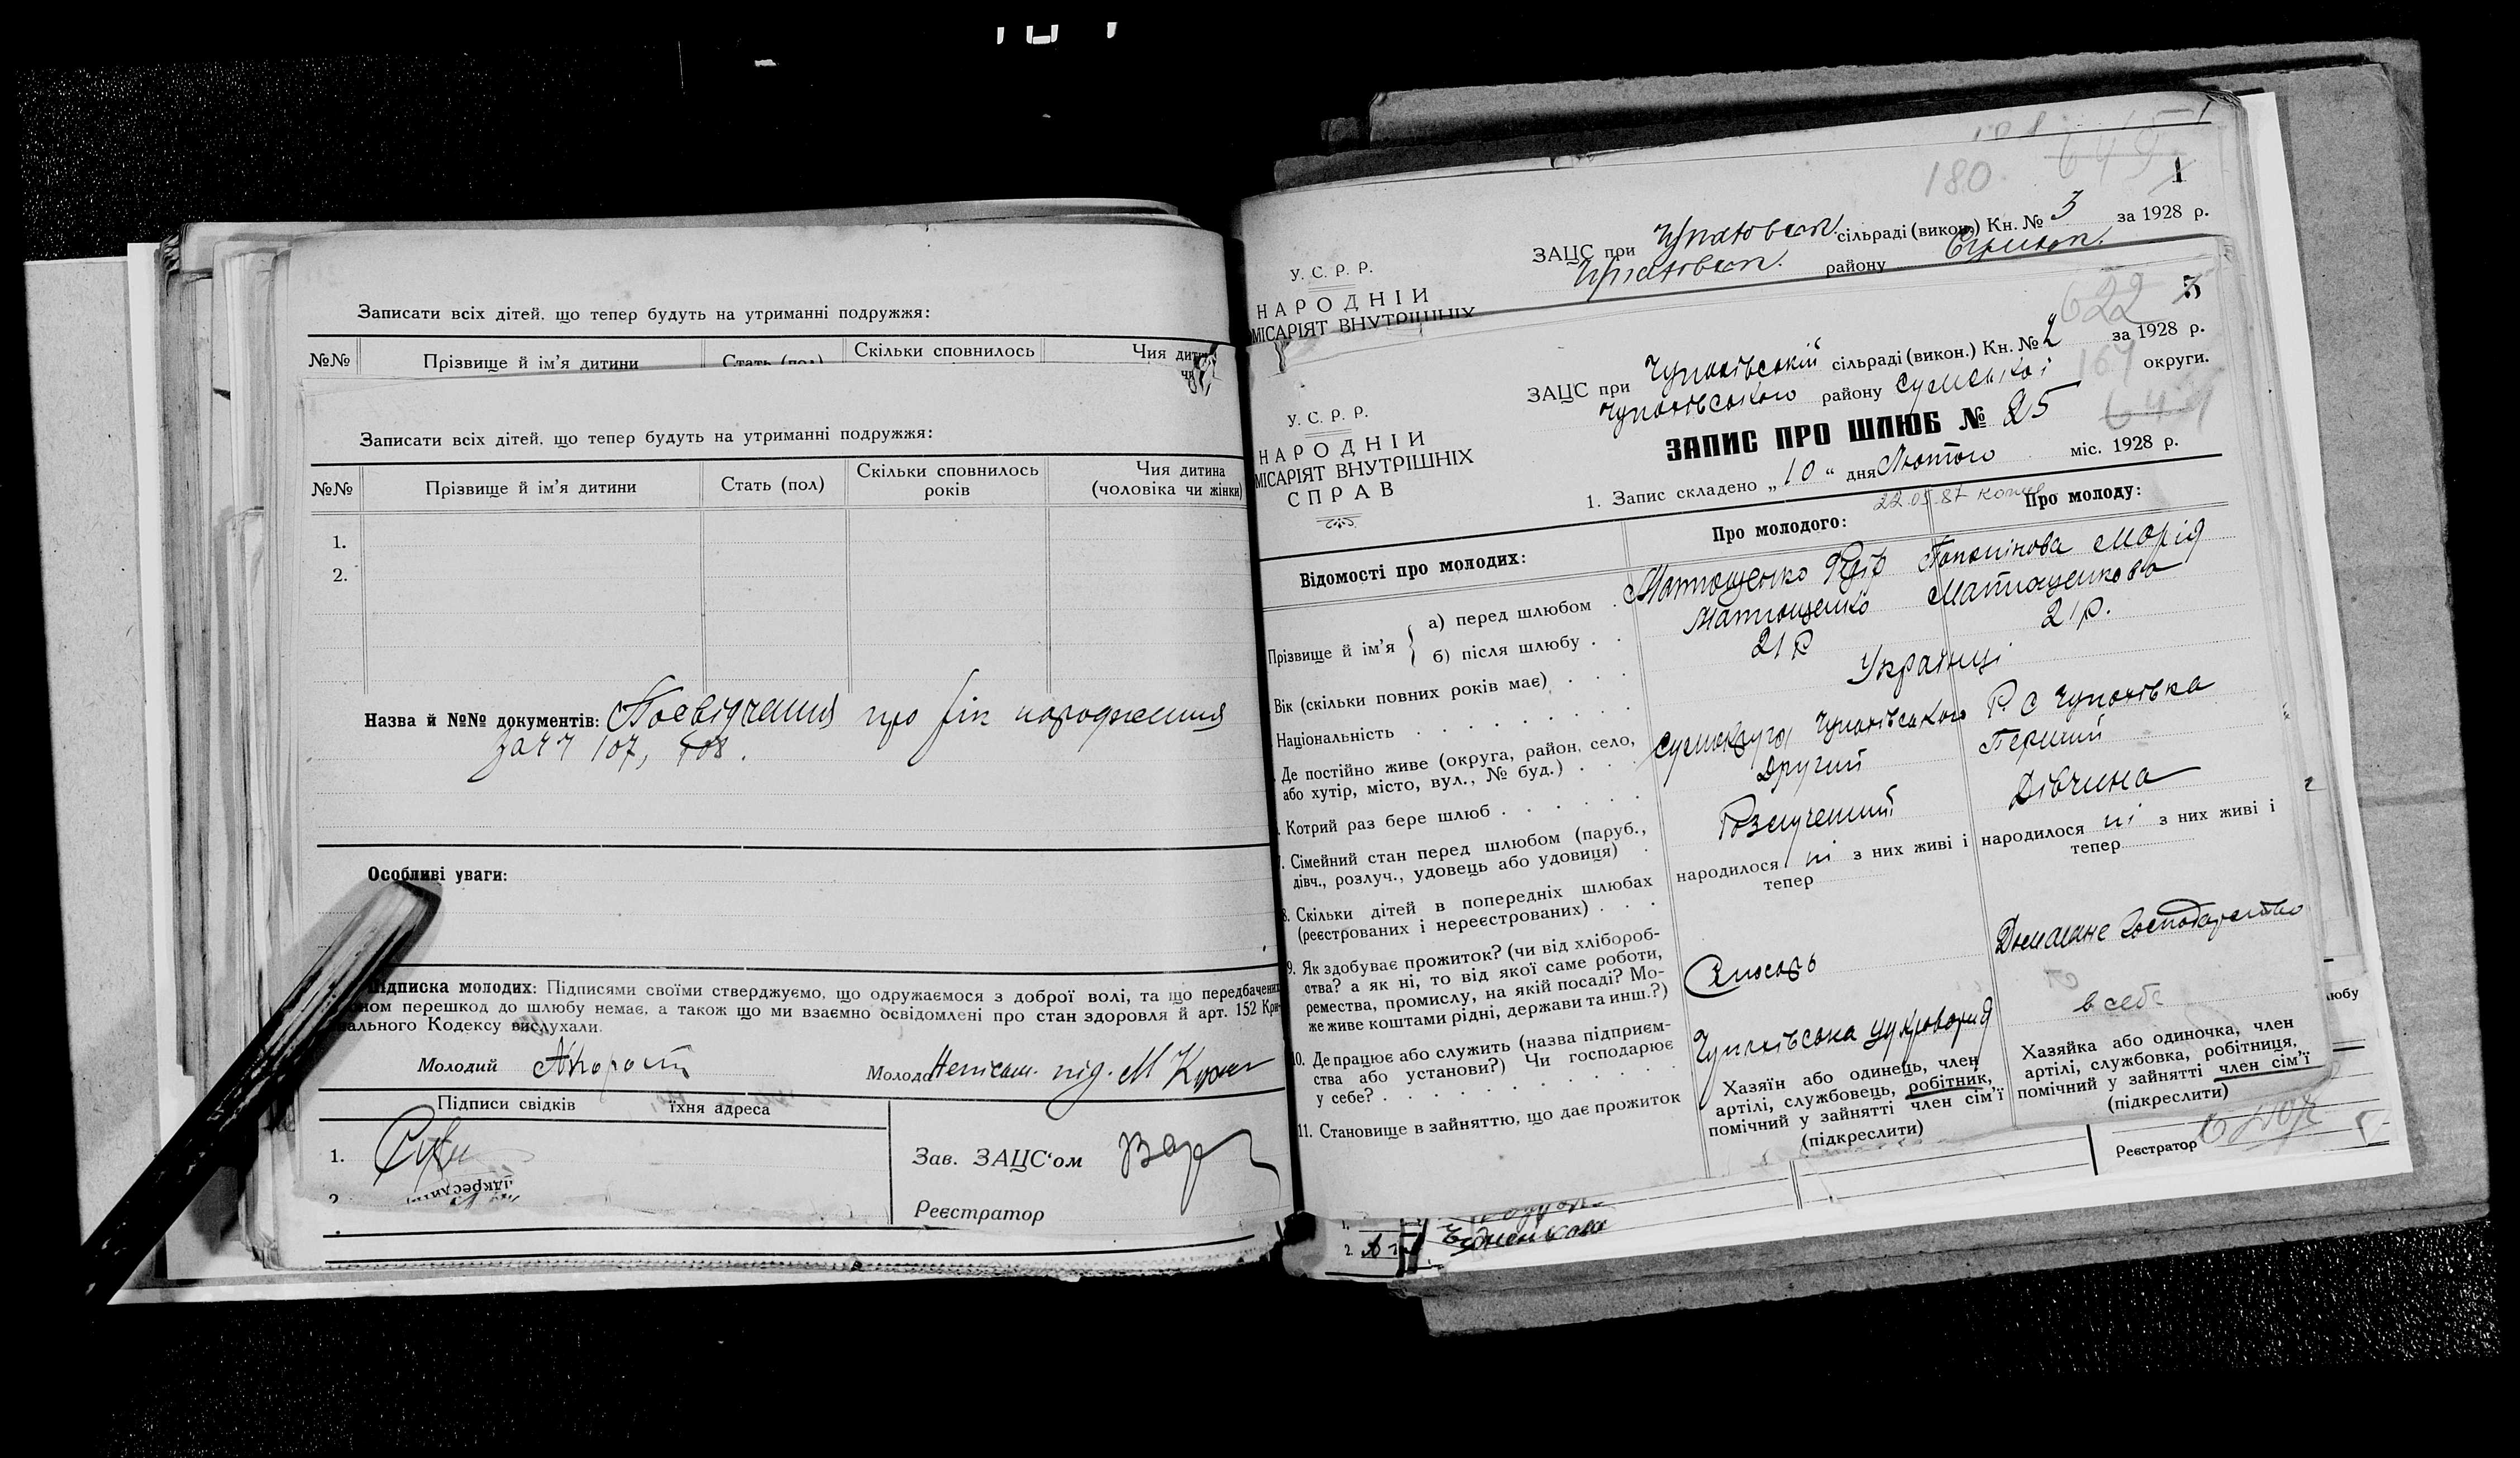 Записати всіх дітей, що тепер будуть на утриманні подружжя:
№№ Прізвище й ім'я дитини Стать (пол) Скільки сповнилось Чия дитина
Записати всіх дітей, що тепер будуть на утриманні подружжя:
№№ Прізвище й ім'я дитини Стать (пол) Скільки сповнилось років Чия дитина (чоловіка чи жінки)
1.
2.
Назва й №№ документів: Посвідчення про рік народження
за 107, 108.
Особливі уваги:
Підписка молодих: Підписями своїми стверджуємо, що одружаємося з доброї волі, та що передбачених
ном перешкод до шлюбу немає, а також що ми взаємно освідомлені про стан здоровля й арт. 152 Кри-
ального Кодексу вислухали.
Молодий
Молода Неписьм. під. М
Підписи свідків їхня адреса
1.
2
Зав. ЗАЦС'ом
Реєстратор
180 649
1
ЗАЦС при сільраді (викон.) Кн. № 3 за 1928 р.
району
У. С. Р. Р.
НАРОДНІЙ
МІСАРІЯТ ВНУТРІШНІХ
622 3
ЗАЦС при Чупахівській сільраді (викон.) Кн. № 2 за 1928 р.
Чупахівського району Сумської округи.
167
У. С. Р. Р.
НАРОДНІЙ
МІСАРІЯТ ВНУТРІШНІХ
СПРАВ
ЗАПИС ПРО ШЛЮБ № 25
1. Запис складено „10“ дня Лютого міс. 1928 р.
22.05.87
Відомості про молодих: Про молодого: Про молоду:
Прізвище й ім'я { а) перед шлюбом . Матющенко Марія
б) після шлюбу . . Матющенко Матющенкова
Вік (скільки повних років має) . . . 21 р 21 р.
Національність . . . . . . . . Українці
Де постійно живе (округа, район, село, Чупахівського Р. С Чупахівка
або хутір, місто, вул., № буд.) . . .
Котрий раз бере шлюб . . . . . . Другий Перший
7. Сімейний стан перед шлюбом (паруб., Розлучений Дівчина
дівч., розлуч., удовець або удовиця) .
8. Скільки дітей в попередніх шлюбах народилося ні з них живі і народилося ні з них живі і
(реєстрованих і нереєстрованих) . . . тепер тепер
9. Як здобуває прожиток? (чи від хлібороб- Слюсарь Домашне Господарство
ства? а як ні, то від якої саме роботи,
ремества, промислу, на якій посаді? Мо-
же живе коштами рідні, держави та инш.?)
10. Де працює або служить (назва підприєм- Чупахівська цукроварня в себе
ства або установи?) Чи господарює
у себе? . . . . . . . . . . . .
11. Становище в зайняттю, що дає прожиток
Хазяїн або одинець, член
артілі, службовець, робітник,
помічний у зайнятті член сім'ї
(підкреслити)
Хазяйка або одиночка, член
артілі, службовка, робітниця,
помічний у зайнятті член сім'ї
(підкреслити)
Реєстратор
1.
2.